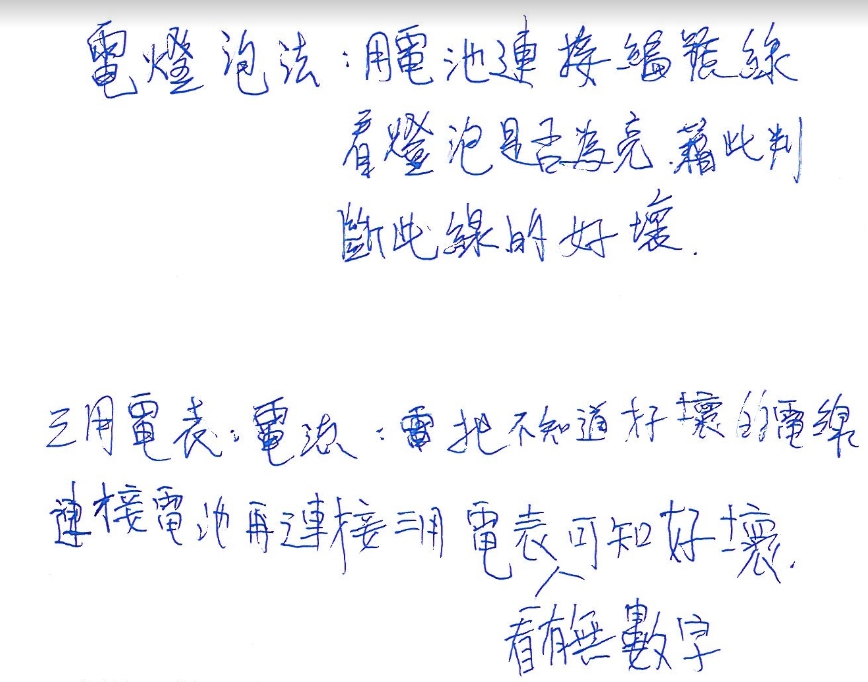 電燈泡法：用電池連接編號線
看燈泡是否為亮.藉此判
斷此線的好壞.
三用電表：電流：電把不知道好壞的電線
連接電池再連接三用電表可知好壞.
看有無數字